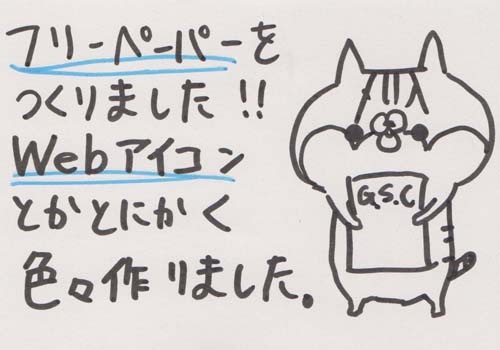 フリーペーパーを
つくりました!!
Webアイコン
とかとにかく
色々作りました。
G.S.C